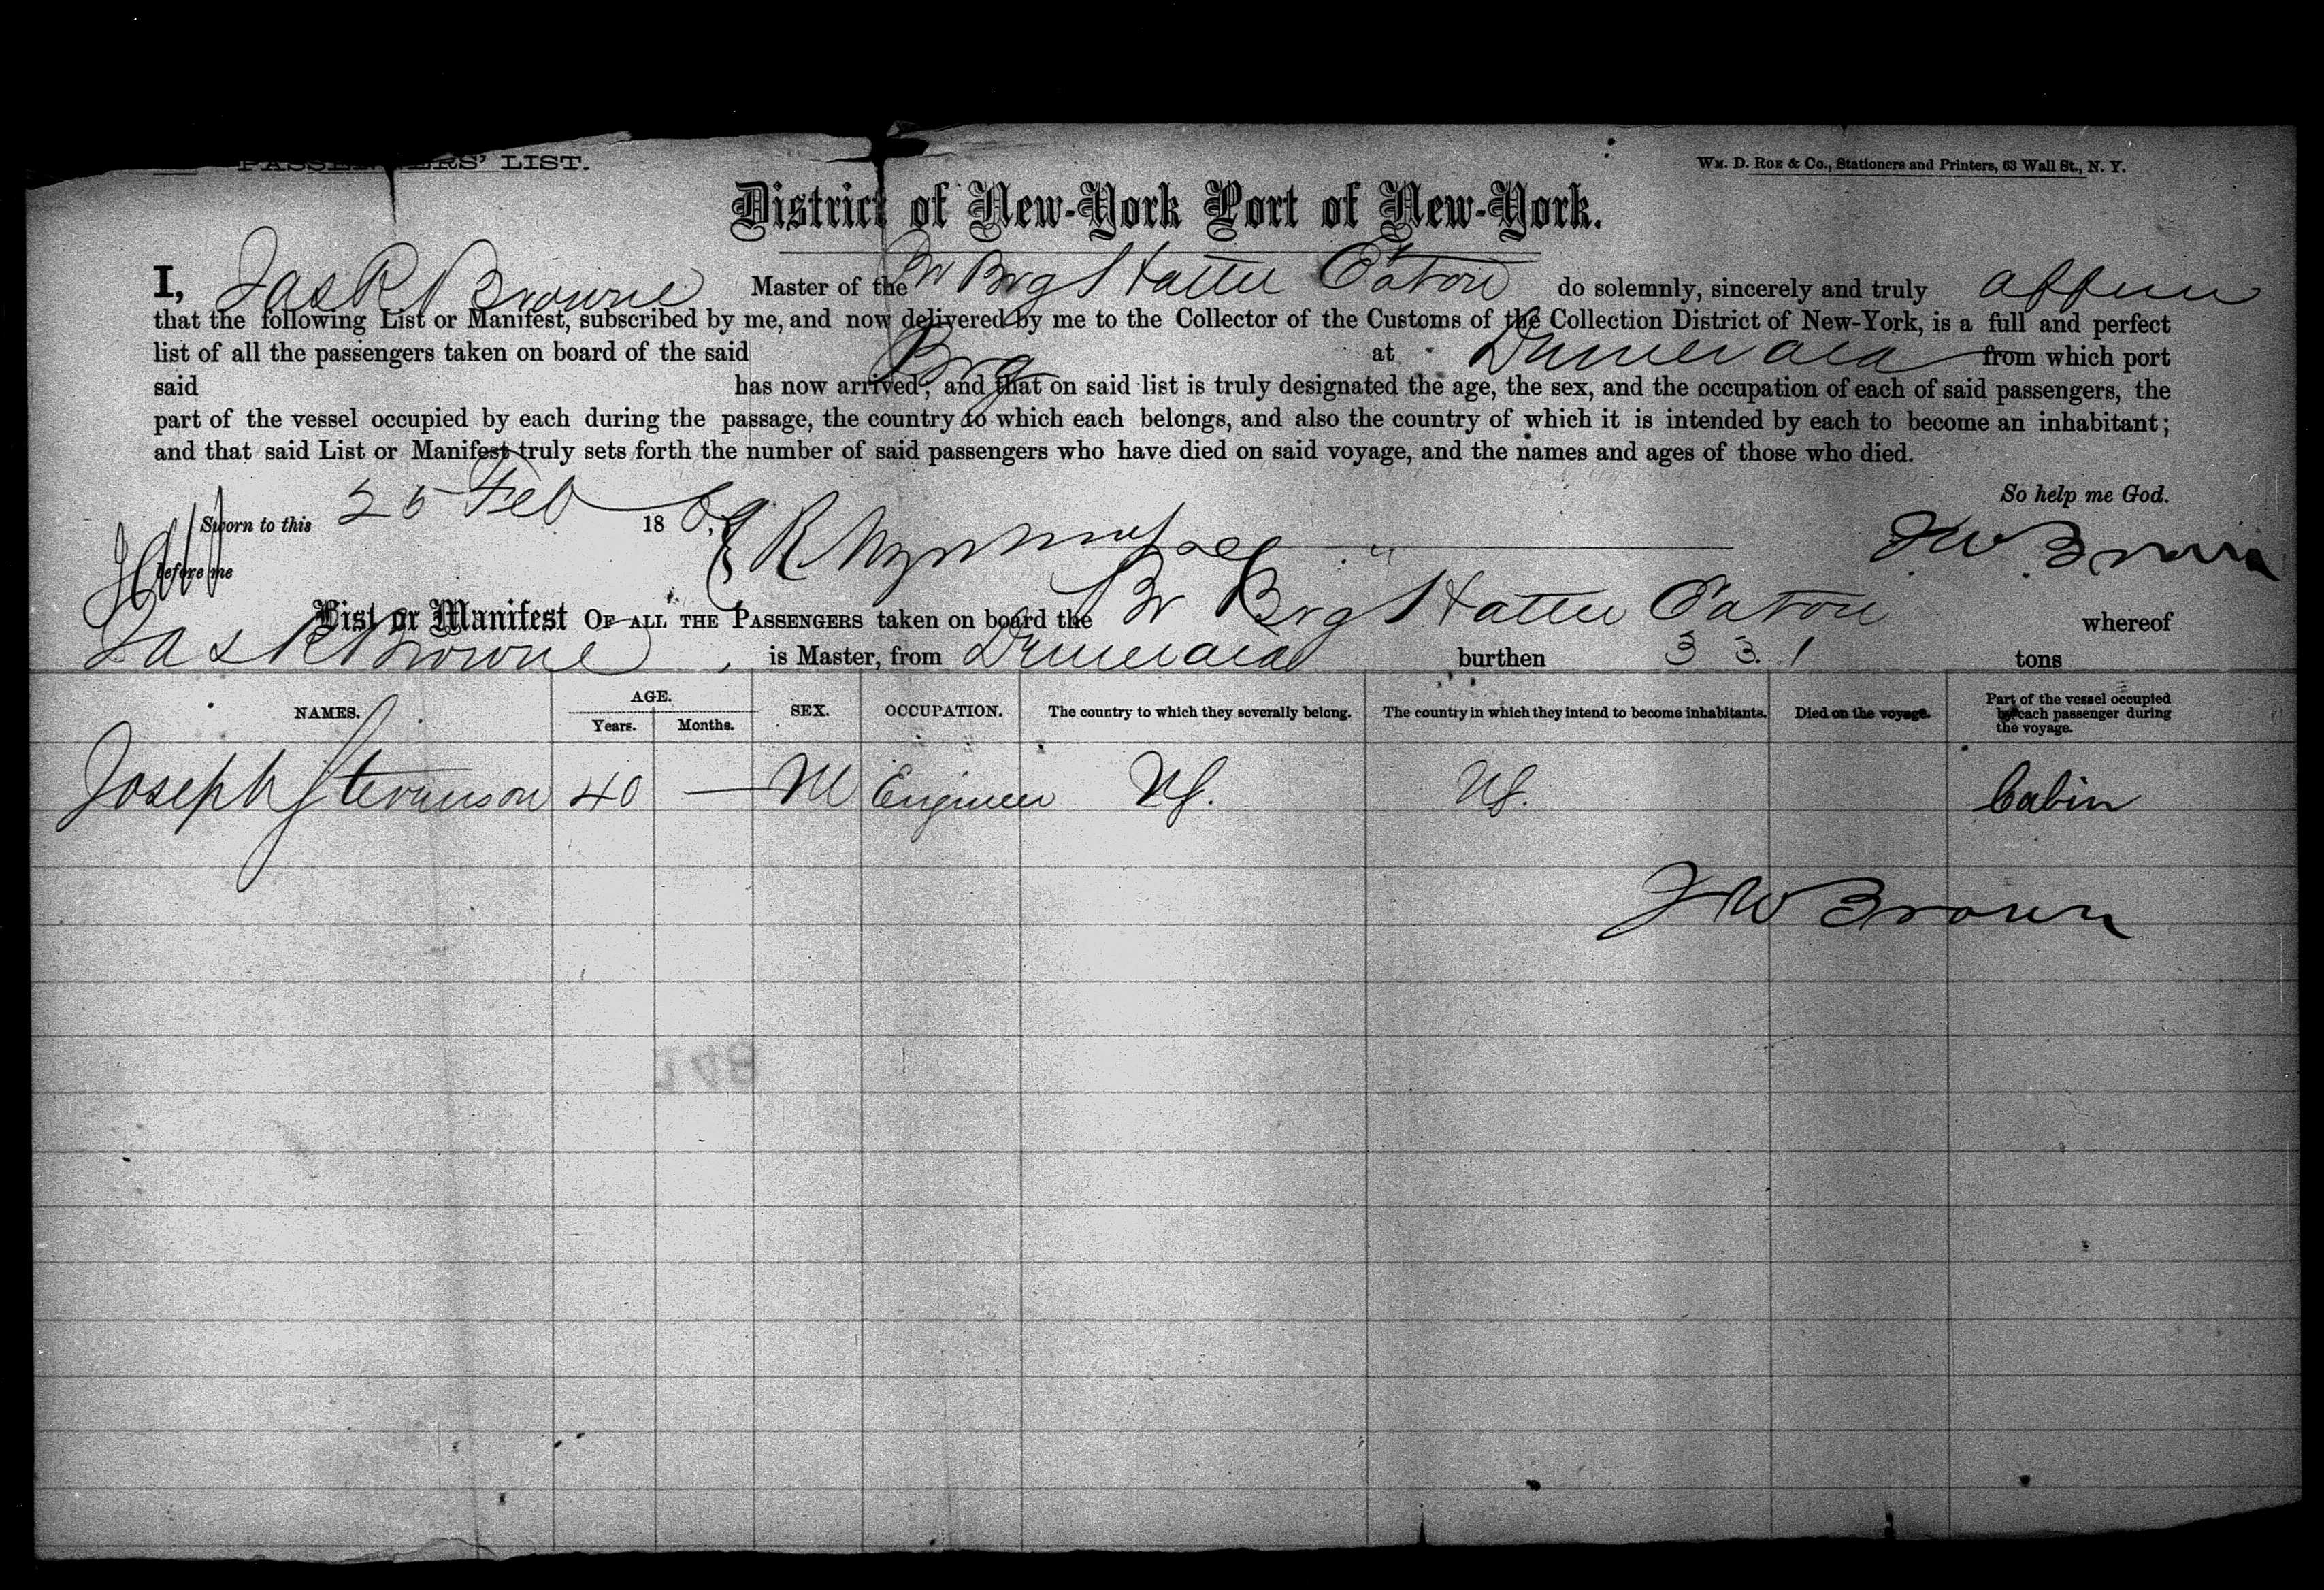 PASSENGERS' LIST.
WM. D. ROE & CO., Stationers and Printers, 63 Wall St., N. Y.
District of New-York Port of New-York.
I, Jas R Browne Master of the Br Brg Hattie Eaton do solemnly, sincerely and truly affirm
that the following List or Manifest, subscribed by me, and now delivered by me to the Collector of the Customs of the Collection District of New-York, is a full and perfect
list of all the passengers taken on board of the said Brg at Demerara from which port
said has now arrived; and that on said list is truly designated the age, the sex, and the occupation of each of said passengers, the
part of the vessel occupied by each during the passage, the country to which each belongs, and also the country of which it is intended by each to become an inhabitant;
and that said List or Manifest truly sets forth the number of said passengers who have died on said voyage, and the names and ages of those who died.
So help me God.
Sworn to this 25 Feb 1869
J W Brown
before me
List or Manifest OF ALL THE PASSENGERS taken on board the Br Brg Hattie Eaton whereof
Jas R Browne is Master, from Demerara burthen 331 tons
NAMES. AGE. Years. Months. SEX. OCCUPATION. The country to which they severally belong. The country in which they intend to become inhabitants. Died on the voyage. Part of the vessel occupied by each passenger during the voyage.
Joseph Stevenson 40 — M Engineer US. US. Cabin
J W Brown